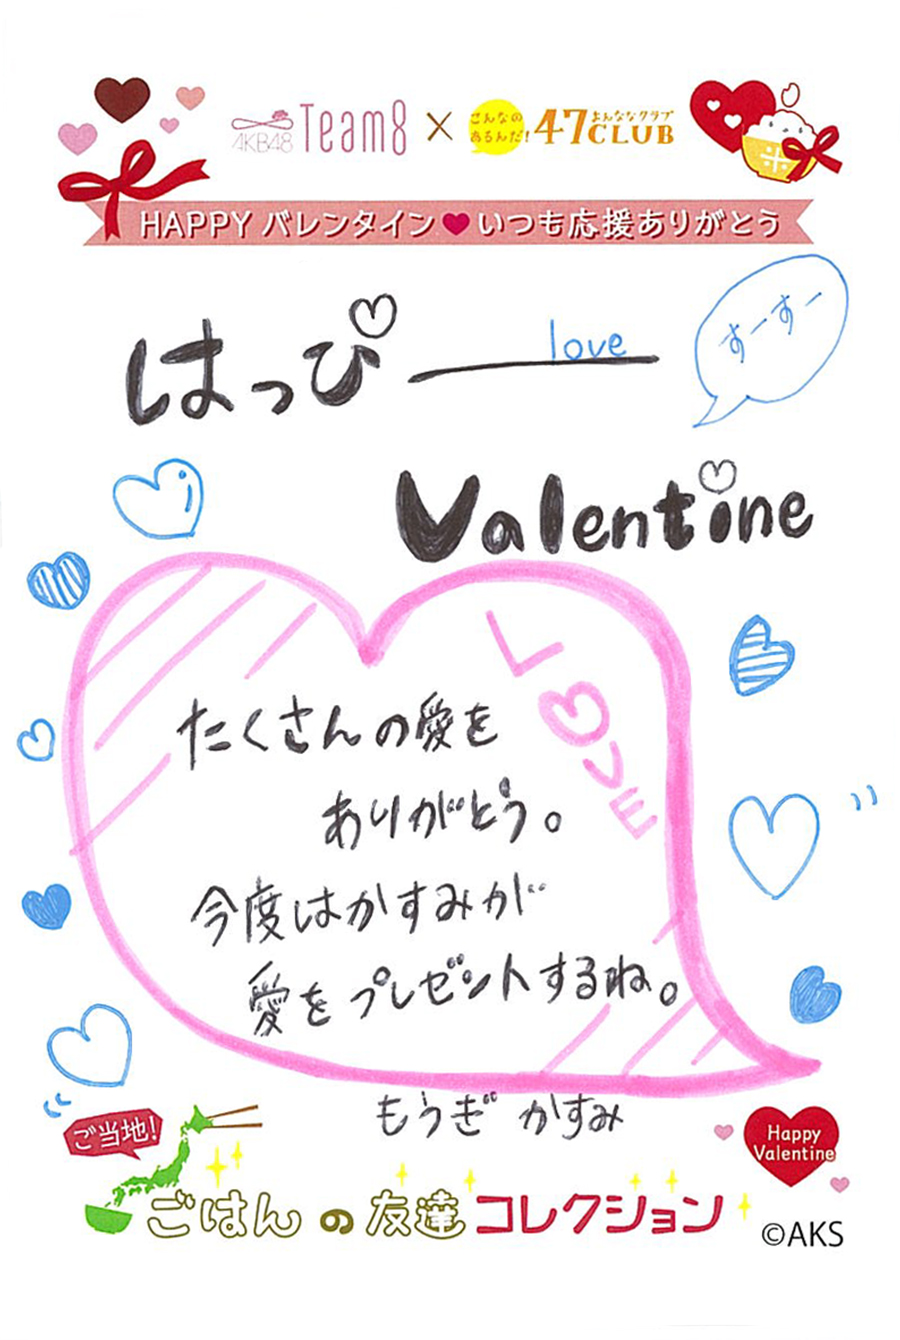 AKB48 Team8 × こんなの あるんだ! 47CLUB よんななクラブ
HAPPY バレンタイン♥いつも応援ありがとう
はっぴー
love
すーすー
Valentine
LOVE
たくさんの愛を
ありがとう。
今度はかすみが
愛をプレゼントするね。
もうぎ かすみ
ご当地!
ごはんの友達コレクション
Happy
Valentine
©AKS